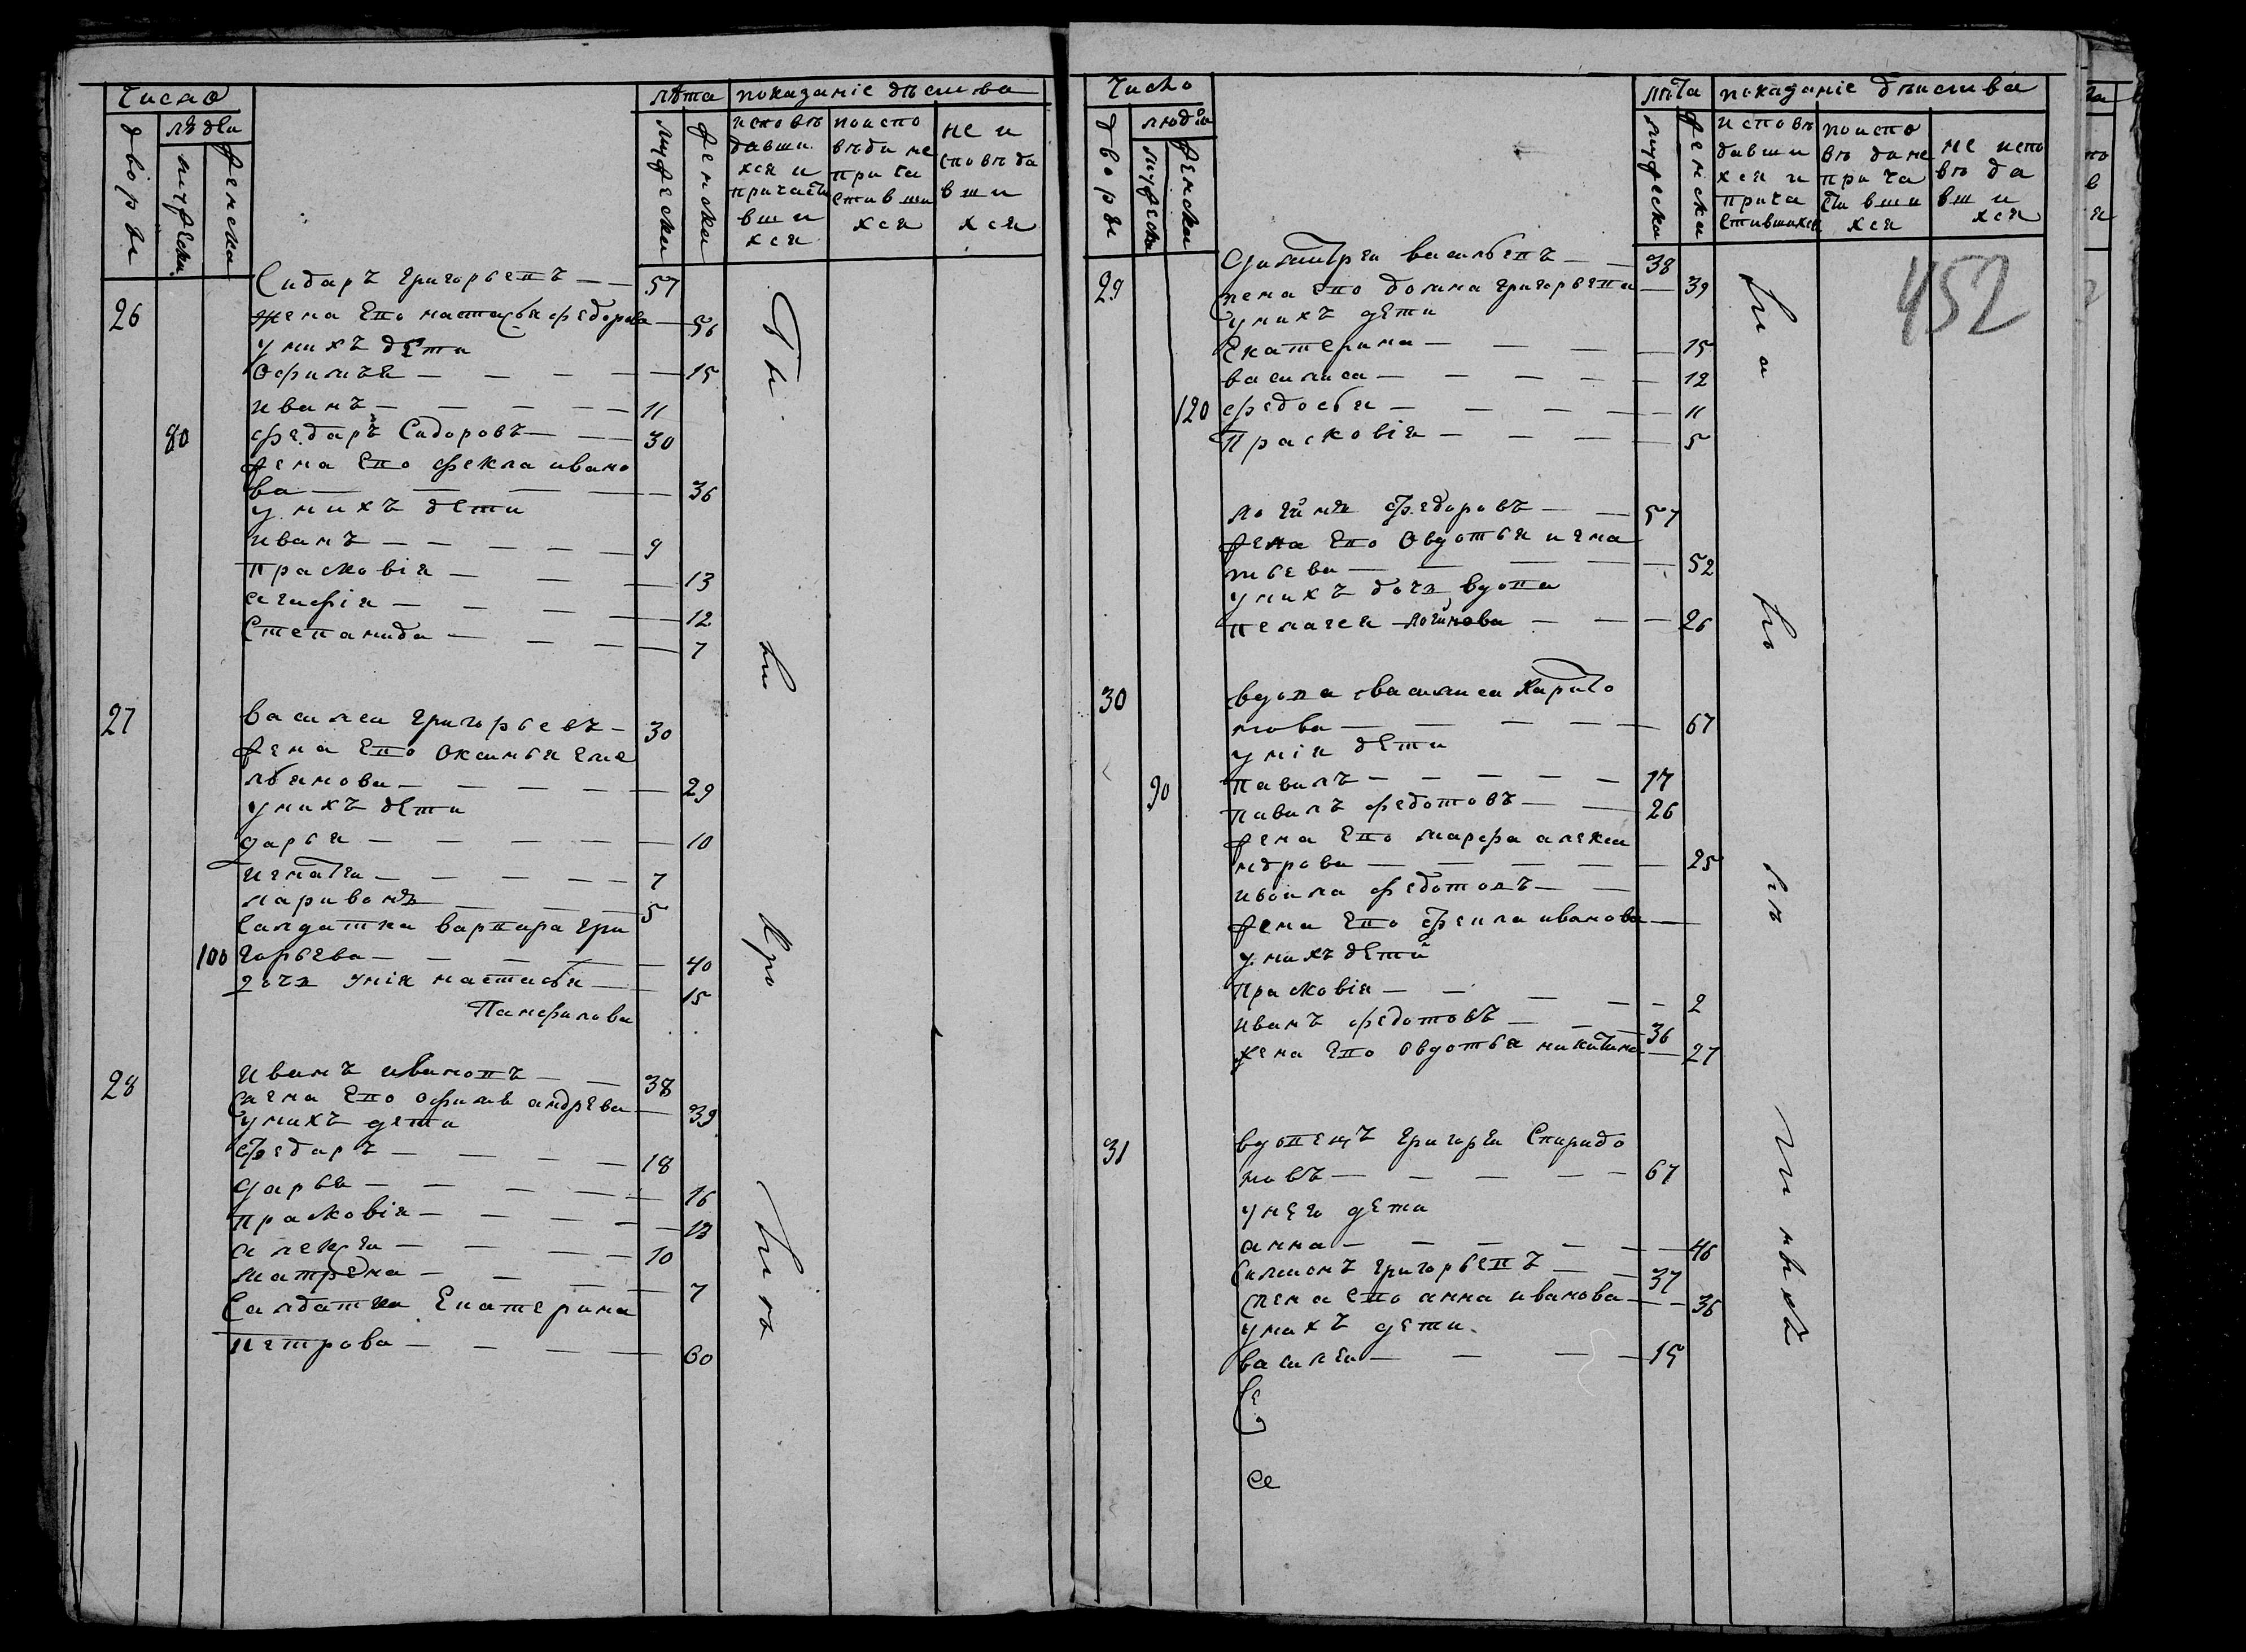 Число
лѣта показаніе дѣиства
дворы
людеи
мужеска
женска
мужески
женски
исповѣ
давши
хся и
причасти
вши
хся
поиспо
вѣди не
прича
стивши
хся
не и
сповѣда
вши
хся
Сидаръ григорьевъ 57
26 жена Ево настасья федорова 56
уникъ дети
офимья 15
иванъ 11
80 федаръ Сидоровъ 30
жена Ево фекла ивано
ва 36
унихъ дети
иванъ 9
прасковія 13
агафія 12
Степанида 7
27 василеи григорьевъ 30
жена Ево Оксинья еме
льянова 29
унихъ дети
дарья 10
игнатеи 7
ларивонъ 5
Салдатка варвара гри
100 горьева 40
дочь унія настасья 15
Панфилова
28 иванъ ивановъ 38
жена Ево офимья андрева 39
унихъ дети
федаръ 18
дарья 16
прасковія 13
алексеи 10
матрена 7
Салдатка Екатерина
петрова 60
Число
лѣта показаніе дѣиства
дворы
людеи
мужеска
женски
мужеска
женска
исповѣ
давши
хся и
прича
стившихся
поиспо
вѣда не
прича
сти вши
хся
не испо
вѣда
вши
хся
452
29 Димитреи васильевъ 38
жена Ево домна григорьева 39
унихъ дети
Екатерина 15
василиса 12
120 федосья 11
Прасковія 5
логинъ федоровъ 57
жена Ево Овдотья игна
тьева 52
унихъ дочь вдова
пелагея логинова 26
30 вдова василиса Харито
нова 67
унія дети
павилъ 17
90 павилъ федотовъ 26
жена Ево марфа алекса
ндрова 25
федотовъ
жена Ево фекла иванова
унихъ дети
прасковія 2
иванъ федотовъ 36
жена Ево Овдотья никитина 27
31 вдовецъ григореи Спиридо
новъ 67
унего дети
анна 46
Симионъ григорьевъ 37
жена ево анна иванова 36
унихъ дети
василеи 15